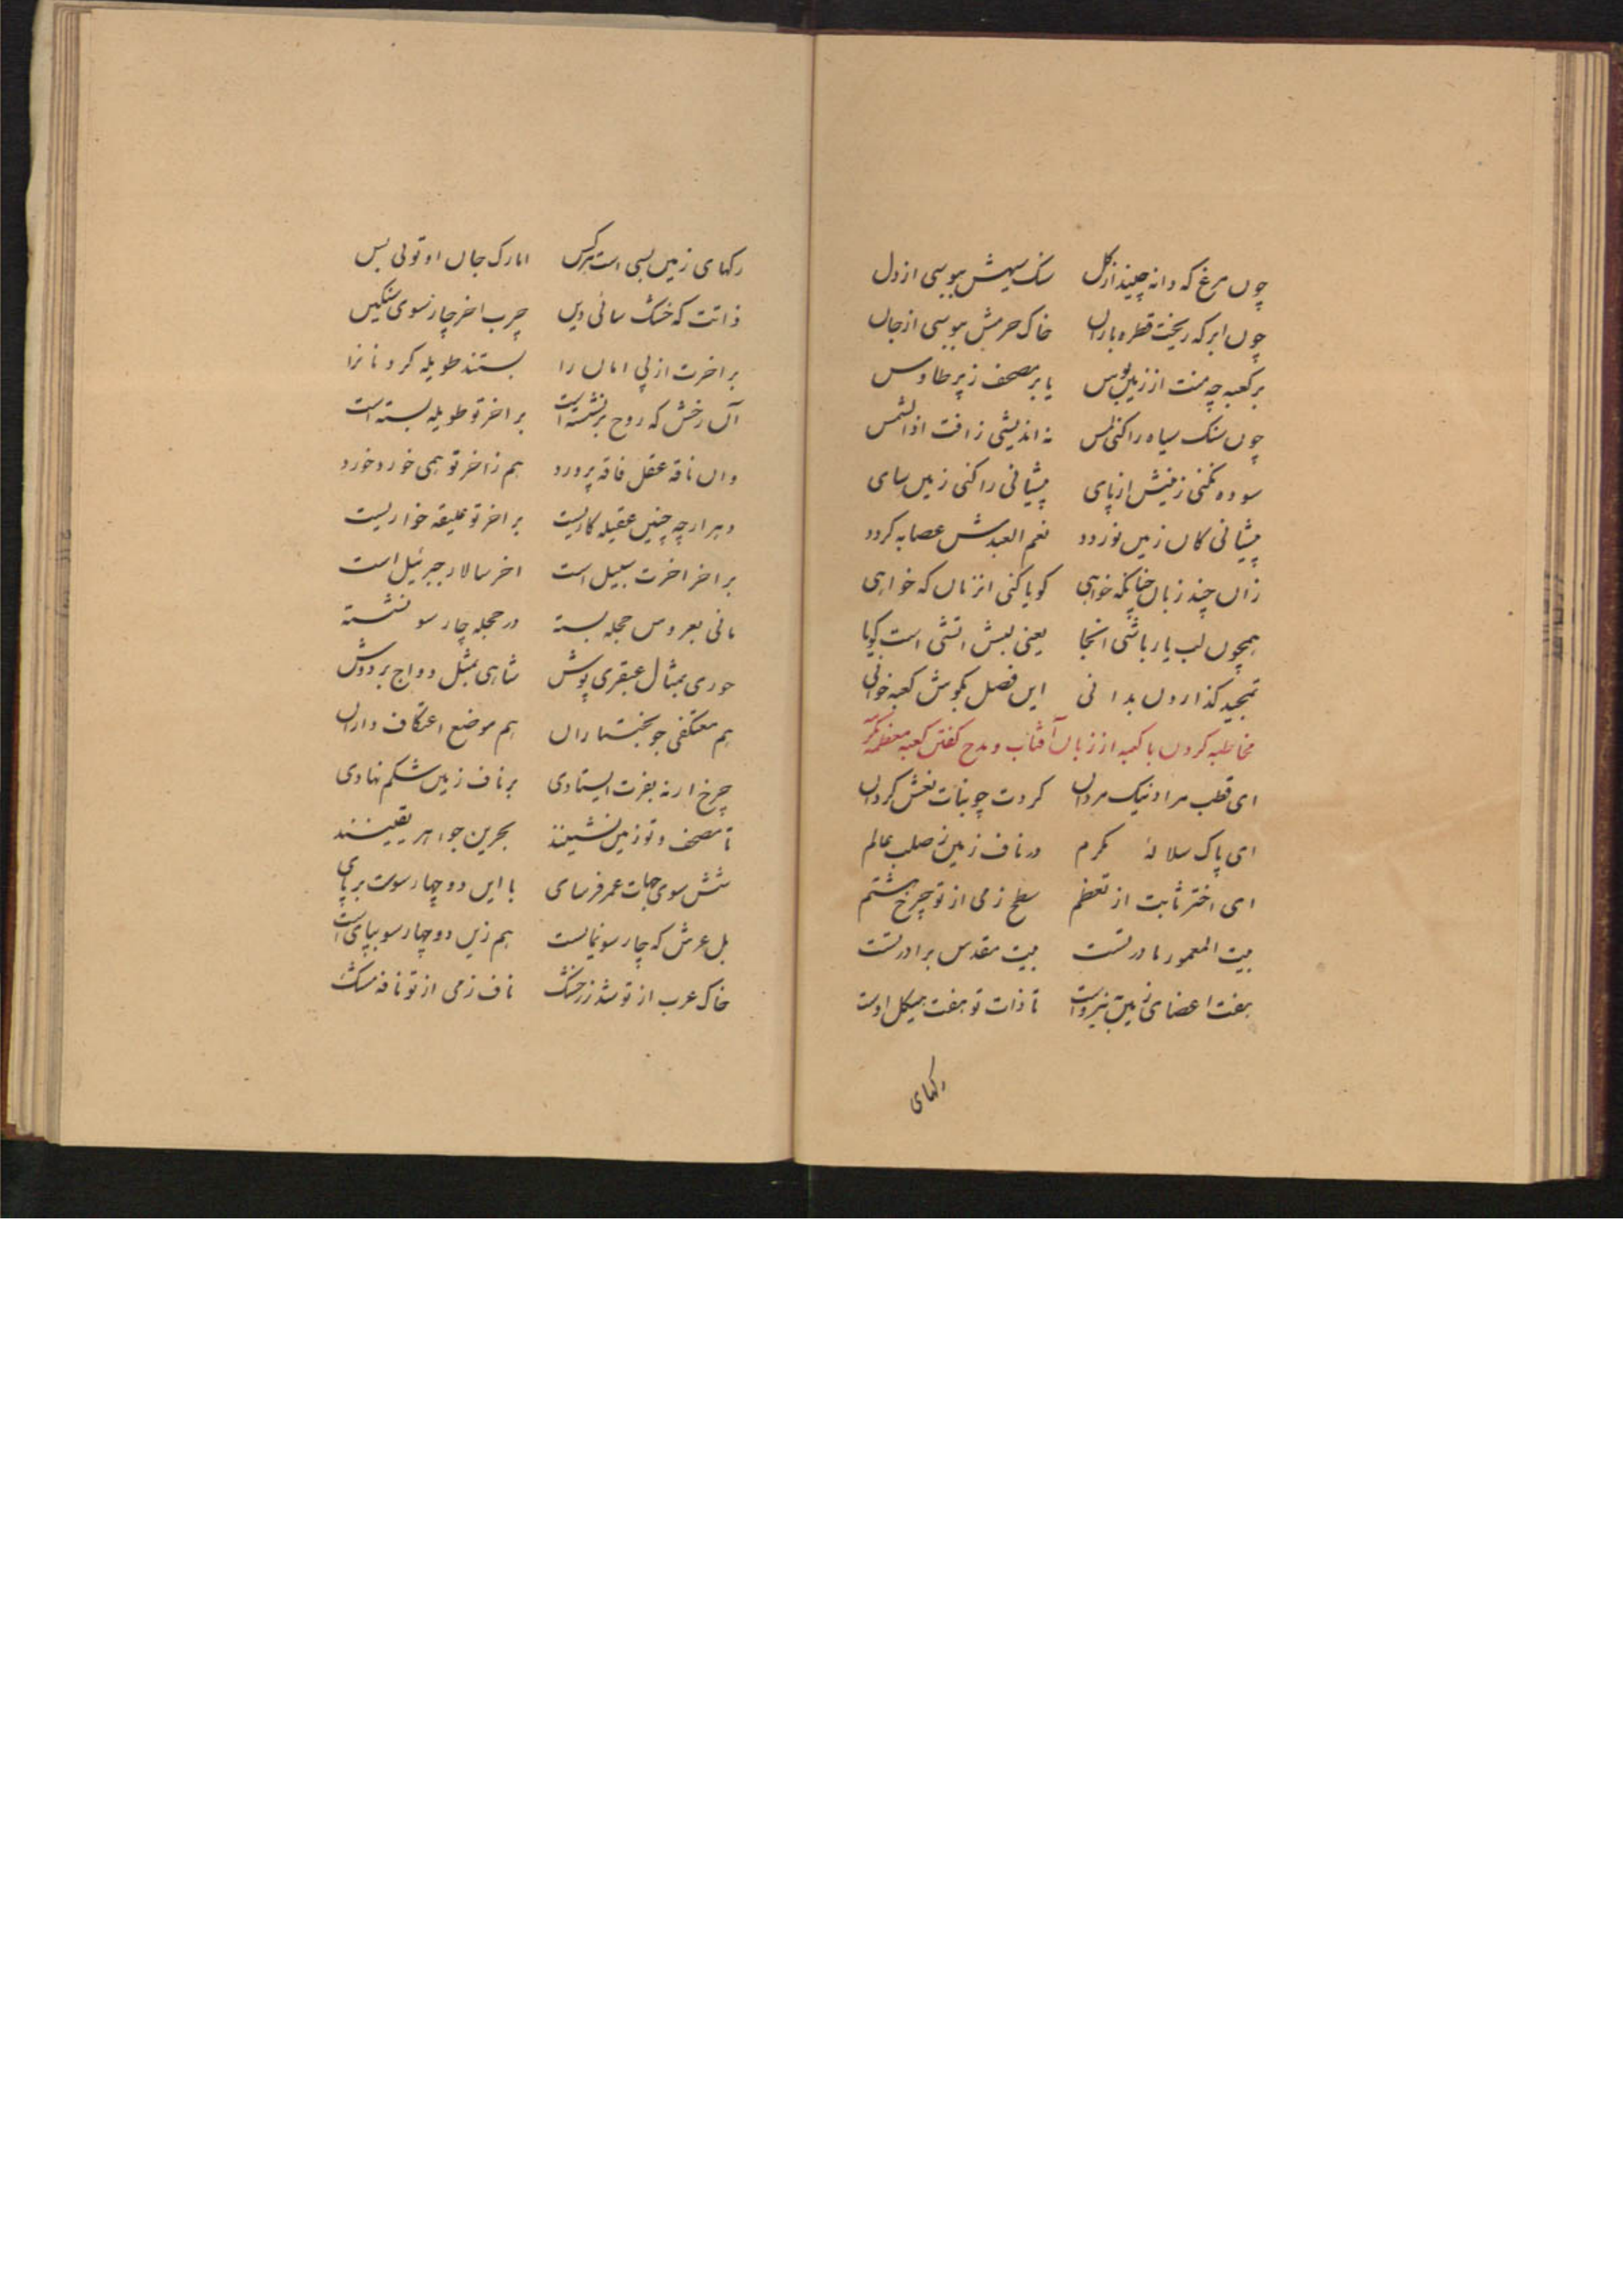 چون مرغ که دانه چیند از گل سنک سیهش ببوسی از دل
چون ابر که ریخت قطره باران خاک حرمش ببوسی از جان
بر کعبه چه منت از زمین بوس یا بر مصحف ز پر طاوس
چون سنک سیاه را کنی لمس نه اندیشی ز افت اذا الشمس
سوده نکنی زمینش از پای پیشانی را کنی زمین سای
پیشانی کان زمین نوردد نعم العبدش عصابه کردد
زان چند زبان چنانکه خواهی کویا کنی انزمان که خواهی
همچون لب یار باشی انجا یعنی لبش اتشی است کویا
تمجید کذاردن بدانی این فصل بکوش کعبه خوانی
مخاطبه کردن با کعبه از زبان آفتاب و مدح کفتن کعبه معظمه مکرمه
ای قطب مراد نیک مردان کردت چو بنات نعش کردان
ای پاک سلالهٔ مکرم در ناف زمین ز صلب عالم
ای اختر ثابت از تعظم سطح زمی از تو چرخ هشتم
بیت المعمور مادر تست بیت مقدس برادر تست
هفت اعضای زمین بنیرو است تا ذات تو هفت هیکل اوست
رکهای
رکهای زمین بسی است هر کس اما رک جان او تویی بس
ذاتت که خشک سانی دین چرب اخر چار سوی سنکین
بر اخرت از پی امان را بستند طویله کردنانرا
آن رخش که روح بر نشسته است بر اخر تو طویله بسته است
وان ناقه عقل فاقه پرورد هم ز اخر تو همی خورد خورد
دهر ارچه چنین عقیله کاریست بر اخر تو علیقه خواریست
بر اخر اخرت سبیل است اخر سالار جبرئیل است
مانی بعروس حجله بسته در حجله چار سو نشسته
حوری بمثال عبقری پوش شاهی بمثل دواج بر دوش
هم معتکفی چو بختیاران هم موضع اعتکاف داران
چرخ ار نه بفرت ایستادی بر ناف زمین شکم نهادی
تا مصحف و تو زمین نشینند بحرین جواهر یقینند
شش سوی جهات عمر فرسای با این دو چهار سوست بر پای
بل عرش که چار سو نمایست هم زین دو چهار سو بپای است
خاک عرب از تو شد زر خشک ناف زمی از تو نافه مشک